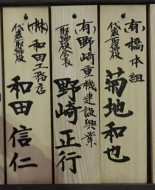 (有)橋体組
代表取締役
菊地和也
(有)野崎重機建設興業
取締役会長
野崎正行
(株)和田工務店
代表取締役
和田信仁